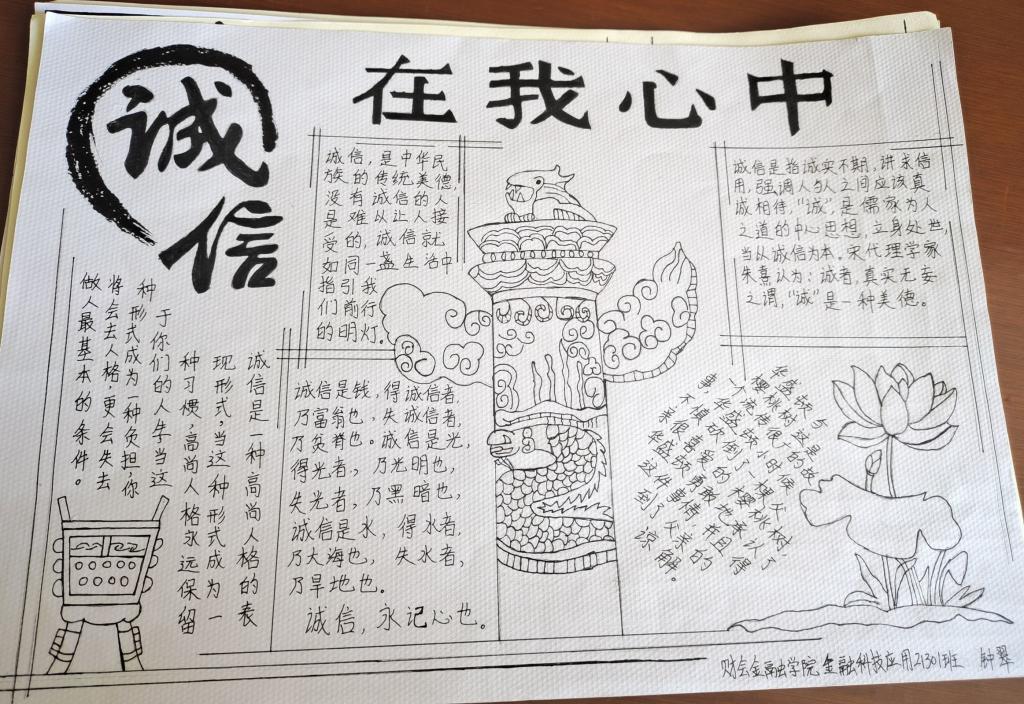 诚信
在我心中
诚信，是中华民
族的传统美德，
没有诚信的人
是难以让人接
受的，诚信就
如同一盏生活中
指引我
们前行
的明灯。
诚信是指诚实不期，讲求信
用，强调人与人之间应该真
诚相待，“诚”，是儒家为人
之道的中心思想，立身处世，
当从诚信为本，宋代理学家
朱熹认为：诚者，真实无妄
之谓，“诚”是一种美德。
诚信是一种高尚人格的表
现形式，当这种形式成为一
种习惯，高尚人格永远保留
于你们的人生当这
种形式成为一种负担你
将会去人格，更会失去
做人最基本的条件。
诚信是钱，得诚信者，
乃富翁也，失诚信者，
乃贫脊也。诚信是光，
得光者，乃光明也，
失光者，乃黑暗也，
诚信是水，得水者，
乃大海也，失水者，
乃旱地也。
诚信，永记心也。
华盛顿与
樱桃树这是
一个流传很广的故
事，华盛顿小时候
不慎砍倒了一棵父
亲很喜爱的樱桃树，
华盛顿勇敢地承认了
这件事情，并且得
到了父亲的
谅解。
财会金融学院 金融科技应用21301班 钟翠